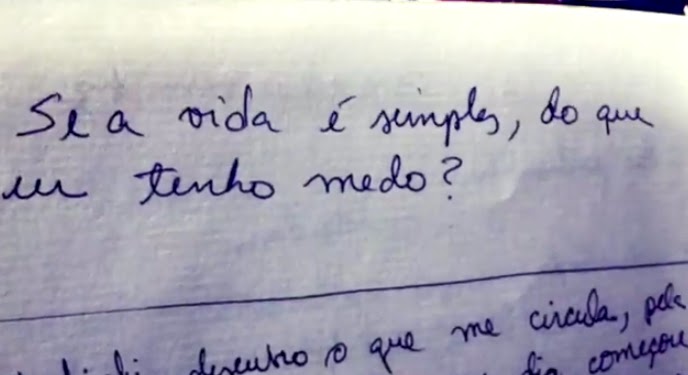 Se a vida é simples, do que
eu tenho medo?
descubro o que me circula, pela
dia começou